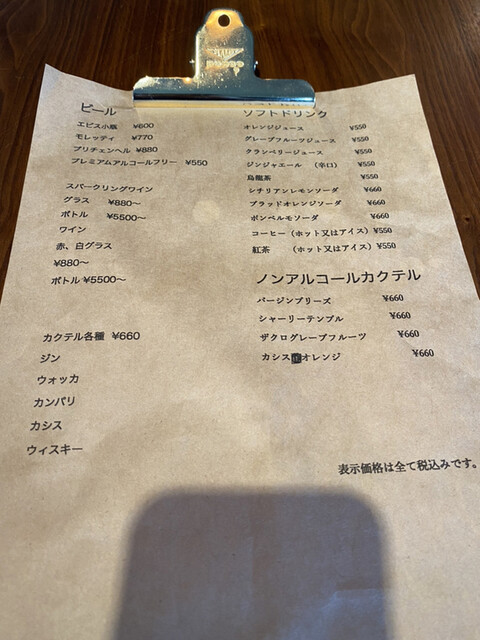 ビール
エビス小瓶 ¥600
モレッティ ¥770
プリチェンヘル ¥880
プレミアムアルコールフリー ¥550
スパークリングワイン
グラス ¥880〜
ボトル ¥5500〜
ワイン
赤、白グラス
¥880〜
ボトル ¥5500〜
カクテル各種 ¥660
ジン
ウォッカ
カンパリ
カシス
ウィスキー
ソフトドリンク
オレンジジュース ¥550
グレープフルーツジュース ¥550
クランベリージュース ¥550
ジンジャエール (辛口) ¥550
烏龍茶 ¥550
シチリアンレモンソーダ ¥660
ブラッドオレンジソーダ ¥660
ポンペルモソーダ ¥660
コーヒー(ホット又はアイス) ¥550
紅茶 (ホット又はアイス) ¥550
ノンアルコールカクテル
バージンブリーズ ¥660
シャーリーテンプル ¥660
ザクログレープフルーツ ¥660
カシスオレンジ ¥660
表示価格は全て税込みです。